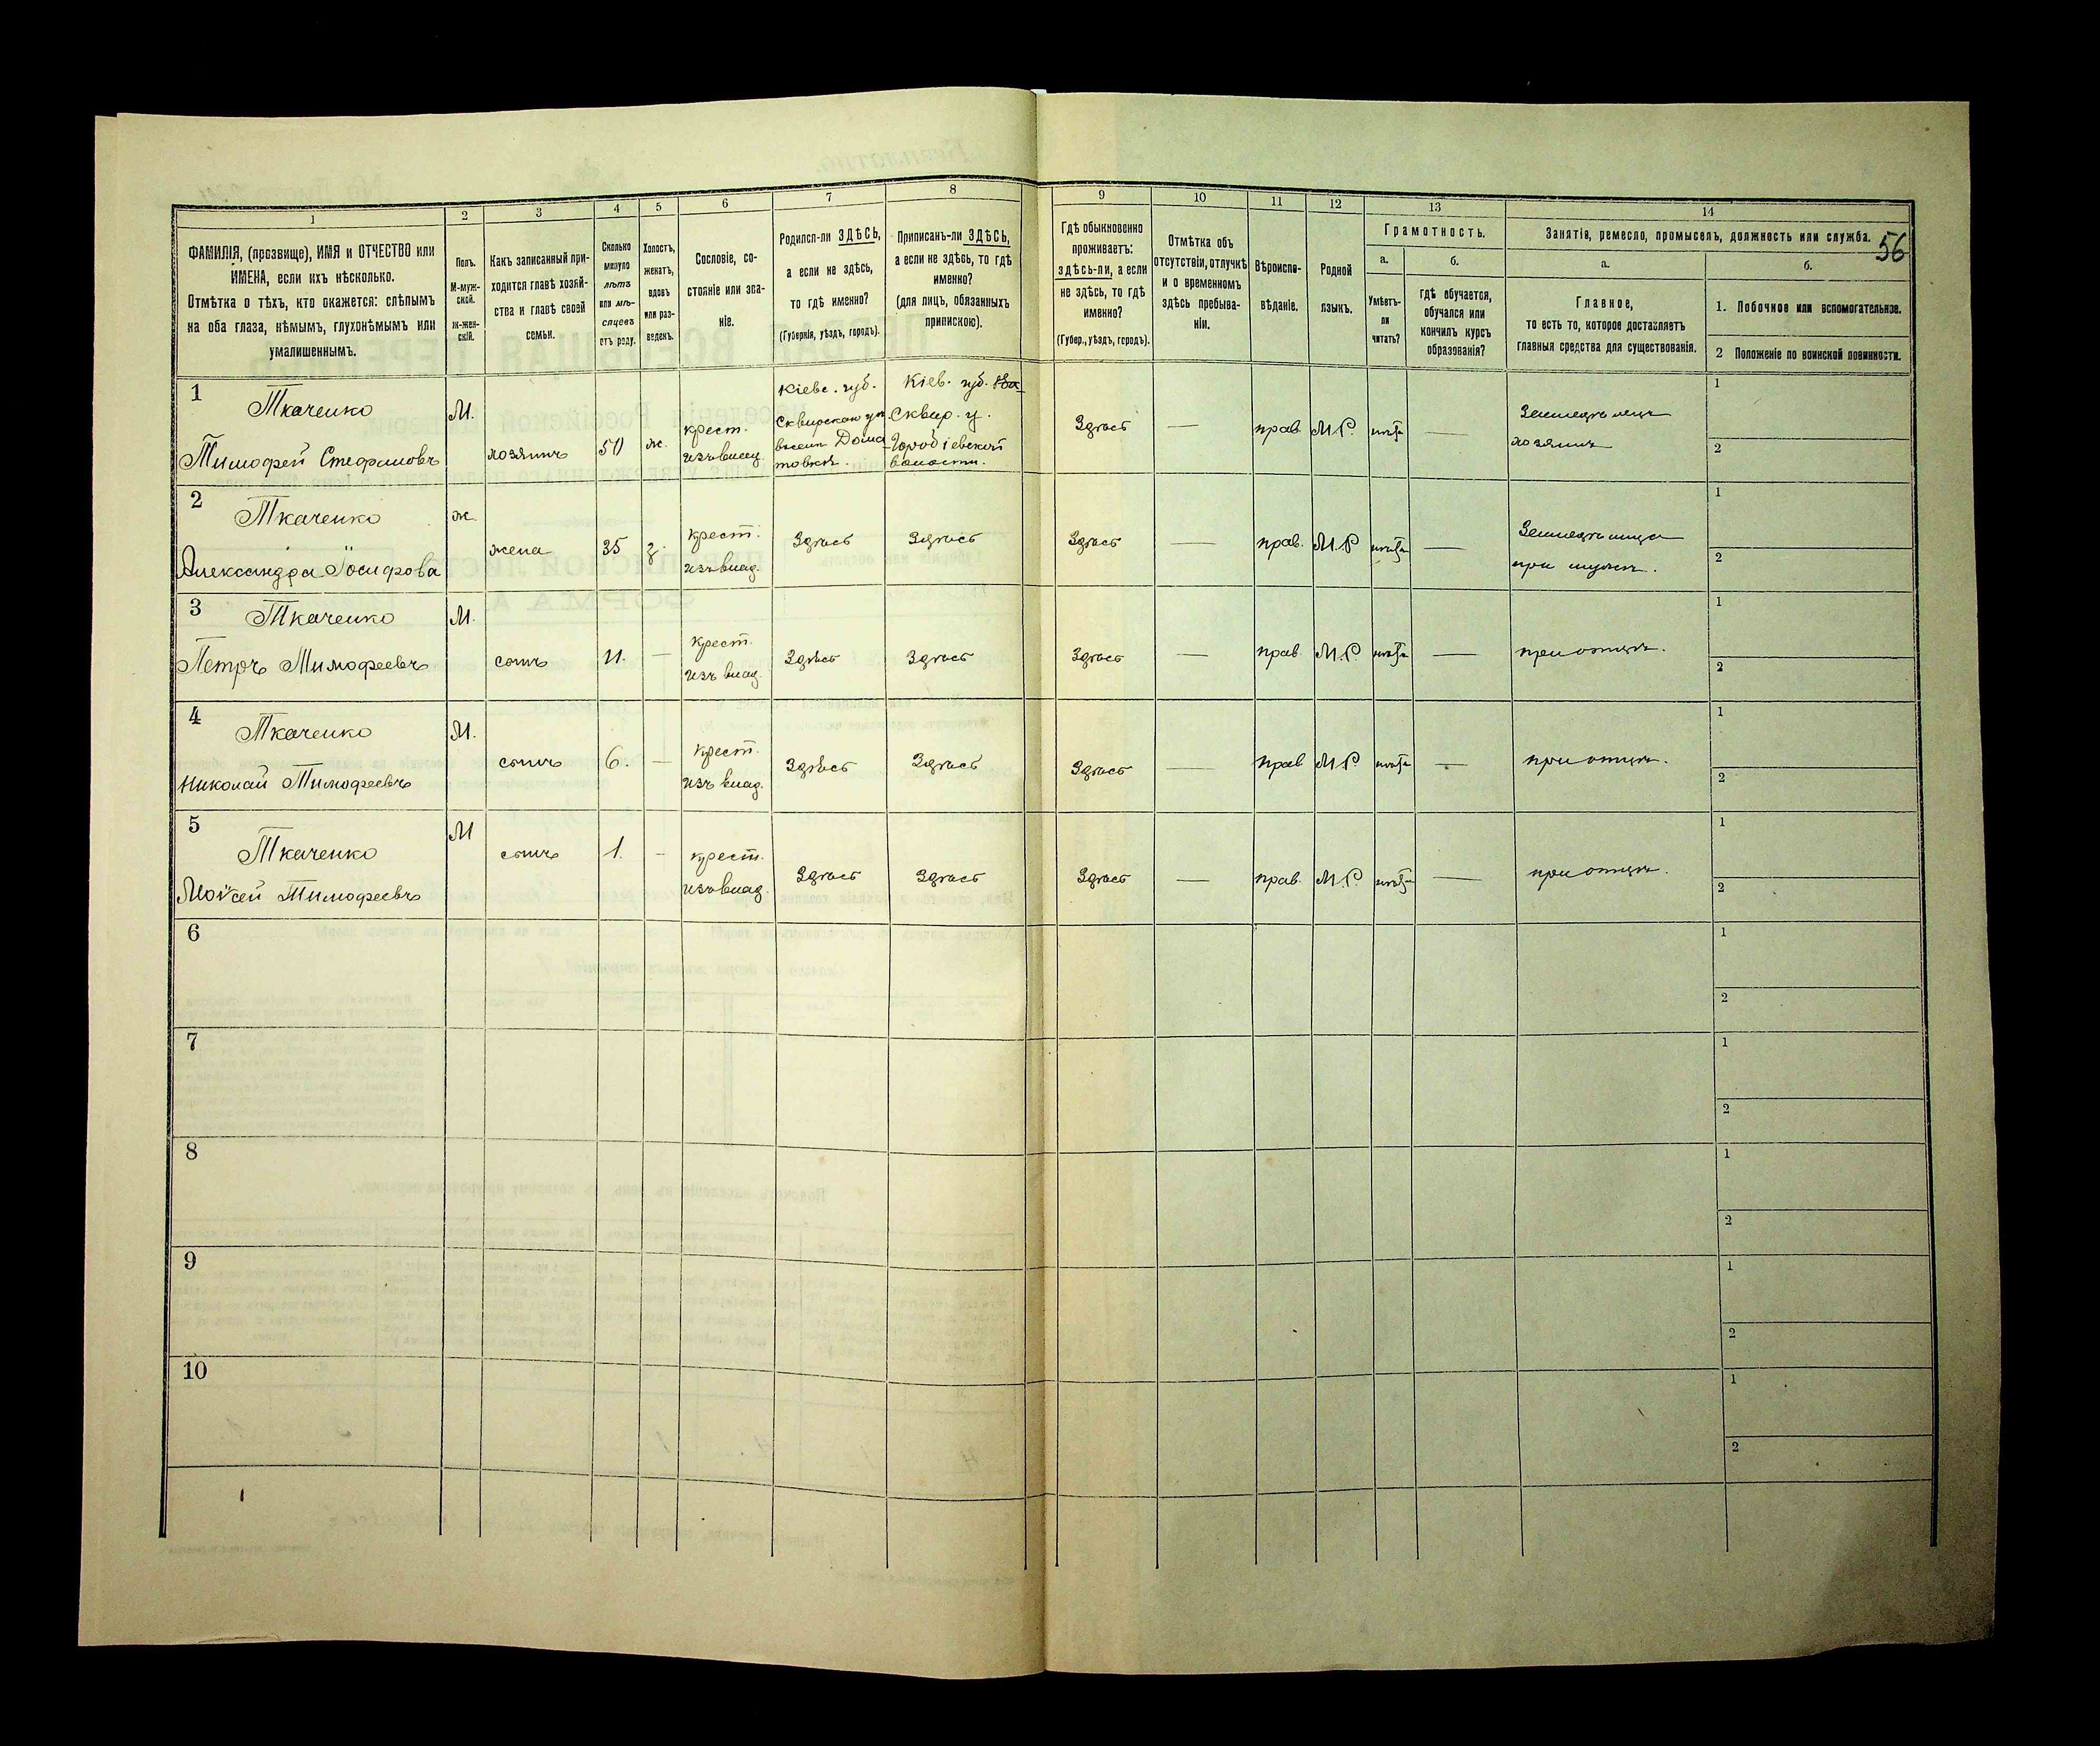 1 2 3 4 5 6 7 8 9 10 11 12 13 14
56
ФАМИЛІЯ, (прозвище), ИМЯ и ОТЧЕСТВО или
ИМЕНА, если ихъ нѣсколько.
Отмѣтка о тѣхъ, кто окажется: слѣпымъ
на оба глаза, нѣмымъ, глухонѣмымъ или
умалишеннымъ.
Полъ.
М-муж-
ской.
Ж-жен-
скій.
Какъ записанный при-
ходится главѣ хозяй-
ства и главѣ своей
семьи.
Сколько
минуло
лѣтъ
или мѣ-
сяцевъ
отъ роду.
Холостъ,
женатъ,
вдовъ
или раз-
веденъ.
Сословіе, со-
стояніе или зва-
ніе.
Родился-ли ЗДѢСЬ,
а если не здѣсь,
то гдѣ именно?
(Губернія, уѣздъ, городъ).
Приписанъ-ли ЗДѢСЬ,
а если не здѣсь, то гдѣ
именно?
(для лицъ, обязанныхъ
припискою).
Гдѣ обыкновенно
проживаетъ:
здѣсь-ли, а если
не здѣсь, то гдѣ
именно?
(Губер., уѣздъ, городъ).
Отмѣтка объ
отсутствіи, отлучкѣ
и о временномъ
здѣсь пребыва-
ніи.
Вѣроиспо-
вѣданіе.
Родной
языкъ.
Грамотность.
а.
Умѣетъ-
ли
читать?
б.
гдѣ обучается,
обучался или
кончилъ курсъ
образованія?
Занятія, ремесло, промыселъ, должность или служба.
а.
Главное,
то есть то, которое доставляетъ
главныя средства для существованія.
б.
1. Побочное или вспомогательное.
2 Положеніе по воинской повинности.
1
Ткаченко
Тимофей Стефановъ
М.
хозяинъ
ж.
крест.
изъ влад.
Кіевс. губ.
Сквирскаго у.
Кіев. губ.
Сквир. у.
Городіевской
волости.
Здѣсь
—
прав.
М.Р.
нѣтъ
—
Земледѣлецъ
хозяинъ
1
2
2
Ткаченко
Александра Іосифова
ж.
жена
35
з.
крест.
изъ влад.
Здѣсь
Здѣсь
Здѣсь
—
прав.
М.Р.
нѣтъ
—
Земледѣлица
при мужѣ.
1
2
3
Ткаченко
Петръ Тимофеевъ
М.
сынъ
11.
—
крест.
изъ влад.
Здѣсь
Здѣсь
Здѣсь
—
прав.
М.Р.
нѣтъ
—
при отцѣ.
1
2
4
Ткаченко
Николай Тимофеевъ
М.
сынъ
6.
—
крест.
изъ влад.
Здѣсь
Здѣсь
Здѣсь
—
прав.
М.Р.
нѣтъ
—
при отцѣ.
1
2
5
Ткаченко
Мойсей Тимофеевъ
М
сынъ
1.
—
крест.
изъ влад.
Здѣсь
Здѣсь
Здѣсь
—
прав.
М.Р.
нѣтъ
—
при отцѣ.
1
2
6
1
2
7
1
2
8
1
2
9
1
2
10
1
2